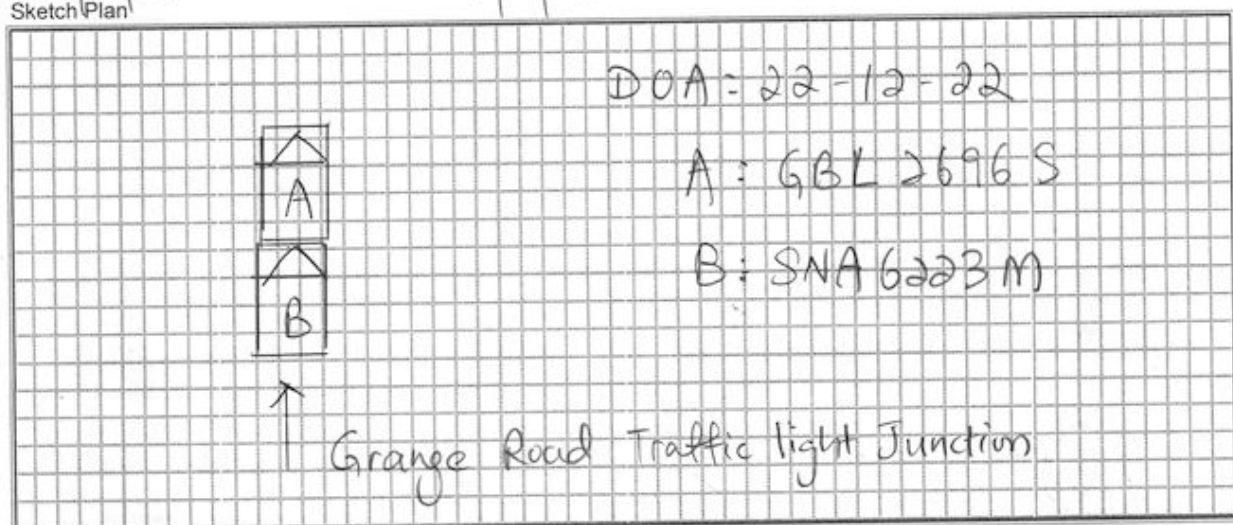 Sketch Plan
DOA: 22-12-22
A
A: GBL 2696 S
B: SNA 6223M
B
Grange Road Traffic light Junction